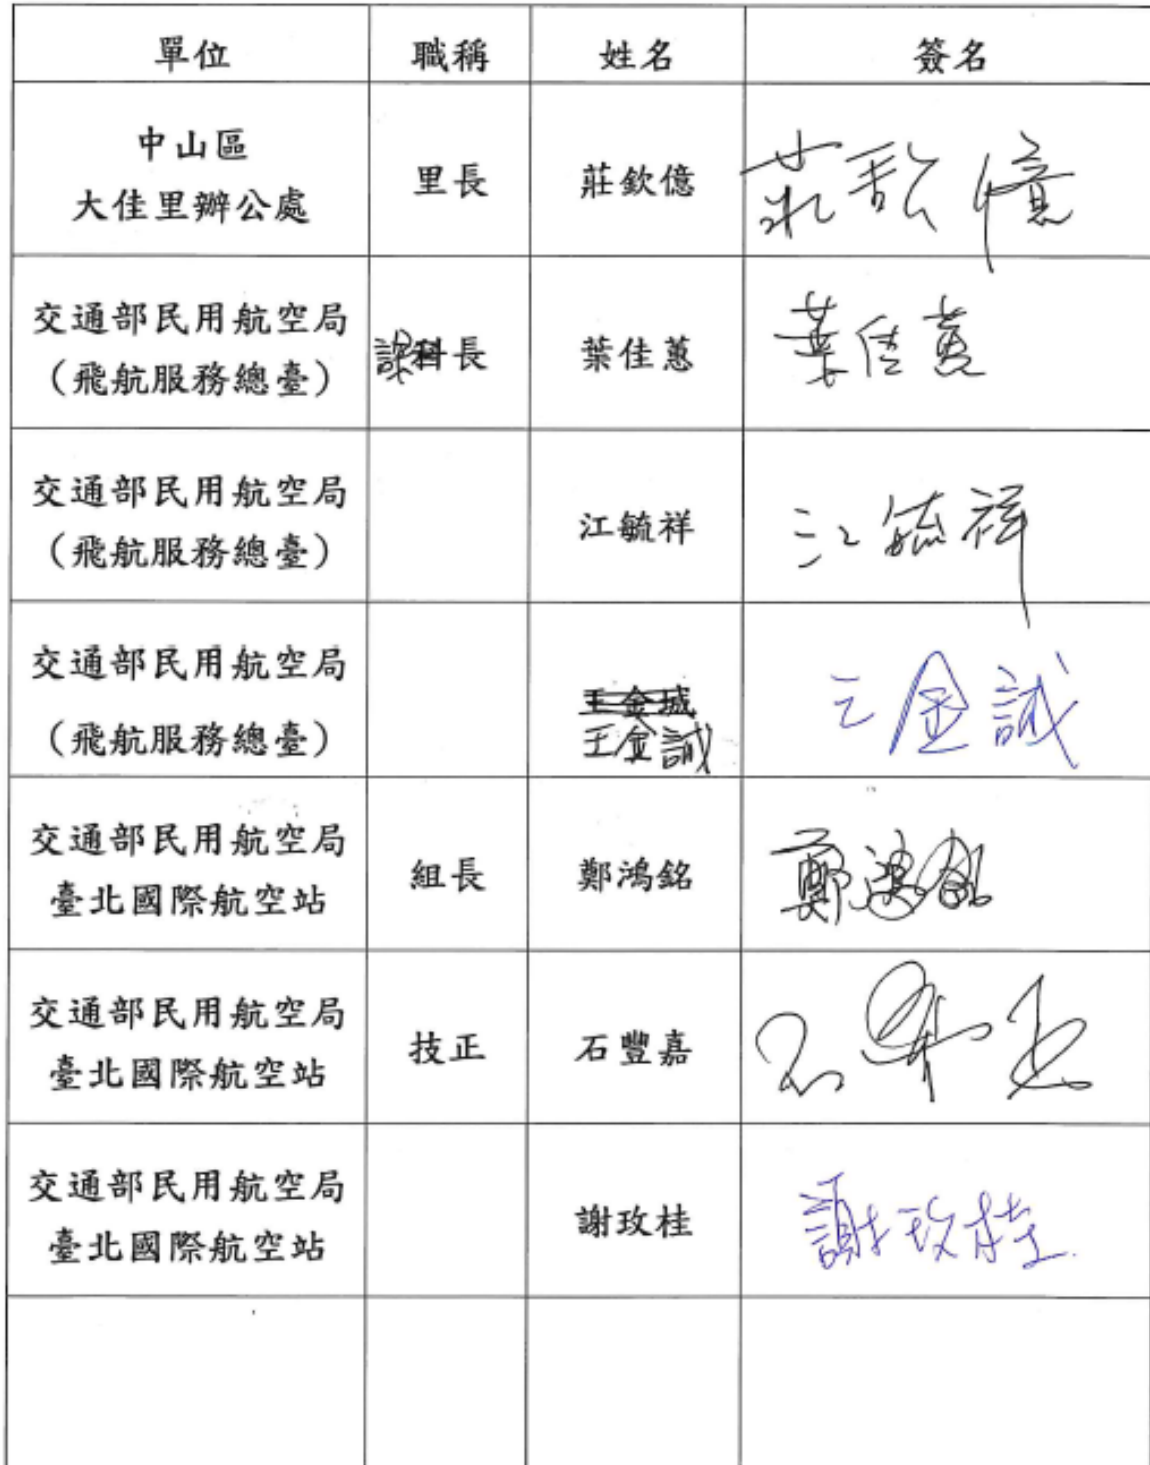 單位 職稱 姓名 簽名
中山區
大佳里辦公處
里長
莊欽億
莊欽億
交通部民用航空局
(飛航服務總臺)
課科長
葉佳蕙
葉佳蕙
交通部民用航空局
(飛航服務總臺)
江毓祥
江毓祥
交通部民用航空局
(飛航服務總臺)
王金城
王金誠
王金誠
交通部民用航空局
臺北國際航空站
組長
鄭鴻銘
鄭鴻銘
交通部民用航空局
臺北國際航空站
技正
石豐嘉
交通部民用航空局
臺北國際航空站
謝玫桂
謝玫桂